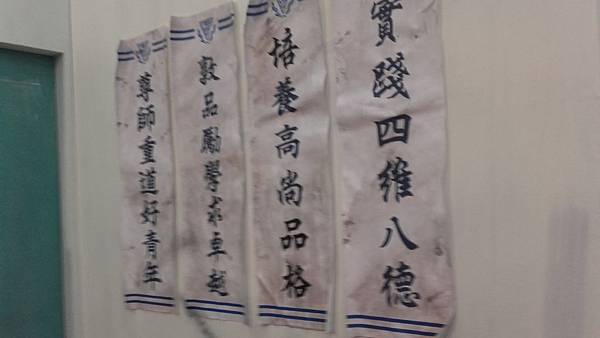 實踐四維八德
培養高尚品格
敦品勵學求卓越
尊師重道好青年